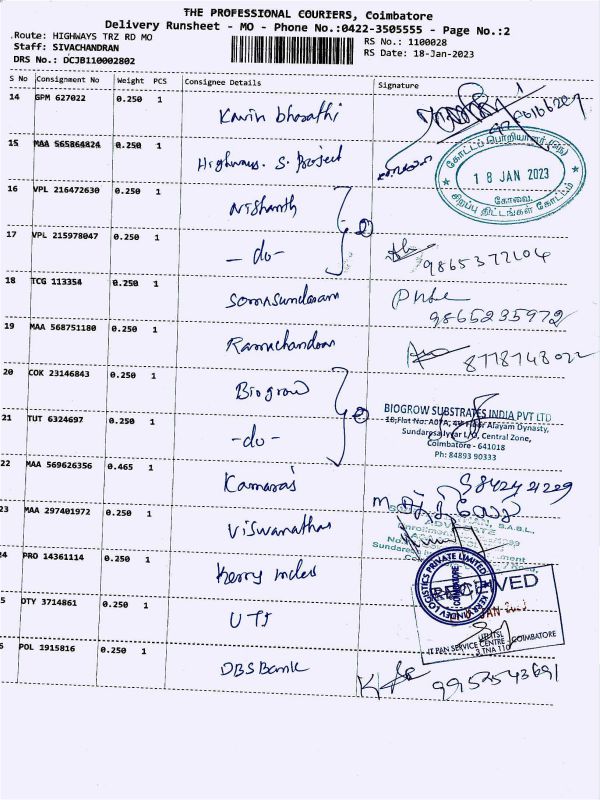 THE PROFESSIONAL COURIERS, Coimbatore
Delivery Runsheet - MO - Phone No.:0422-3505555 - Page No.:2
Route: HIGHWAYS TRZ RD MO
Staff: SIVACHANDRAN
DRS No.: DCJB110002802
RS No.: 1100028
RS Date: 18-Jan-2023
S No Consignment No Weight PCS Consignee Details Signature
14 GPM 627022 0.250 1 Kavin bharathi
15 MAA 565864824 0.250 1 Highways. S. Project
கோட்டப் பொறியாளர் (நெ)
18 JAN 2023
கோவை
சிறப்பு திட்டங்கள் கோட்டம்
16 VPL 216472630 0.250 1 Nishanth
17 VPL 215978047 0.250 1 - do - 9865377204
18 TCG 113354 0.250 1 Somasundaram
9865235972
19 MAA 568751180 0.250 1 Ramachandran 8778748022
20 COK 23146843 0.250 1 Biogrow
BIOGROW SUBSTRATES INDIA PVT LTD
Alayam Dynasty,
Sundaresa Iyyar L/O, Central Zone,
Coimbatore - 641018
Ph: 84893 90333
21 TUT 6324697 0.250 1 - do -
22 MAA 569626356 0.465 1 Kamaraj
23 MAA 297401972 0.250 1 Viswanathan
24 PRO 14361114 0.250 1 Kerry Indev
KERRY INDEV LOGISTICS PRIVATE LIMITED
COIMBATORE
5 DTY 3714861 0.250 1 UTI
RECEIVED
JAN 2023
UTIITSL
IT PAN SERVICE CENTRE - COIMBATORE
3 TNA 110
6 POL 1915816 0.250 1 DBS Bank 9952543691